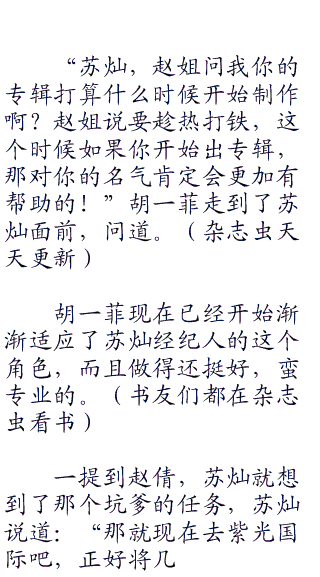 “苏灿，赵姐问我你的
专辑打算什么时候开始制作
啊？赵姐说要趁热打铁，这
个时候如果你开始出专辑，
那对你的名气肯定会更加有
帮助的！”胡一菲走到了苏
灿面前，问道。（杂志虫天
天更新）
胡一菲现在已经开始渐
渐适应了苏灿经纪人的这个
角色，而且做得还挺好，蛮
专业的。（书友们都在杂志
虫看书）
一提到赵倩，苏灿就想
到了那个坑爹的任务，苏灿
说道：“那就现在去紫光国
际吧，正好将几